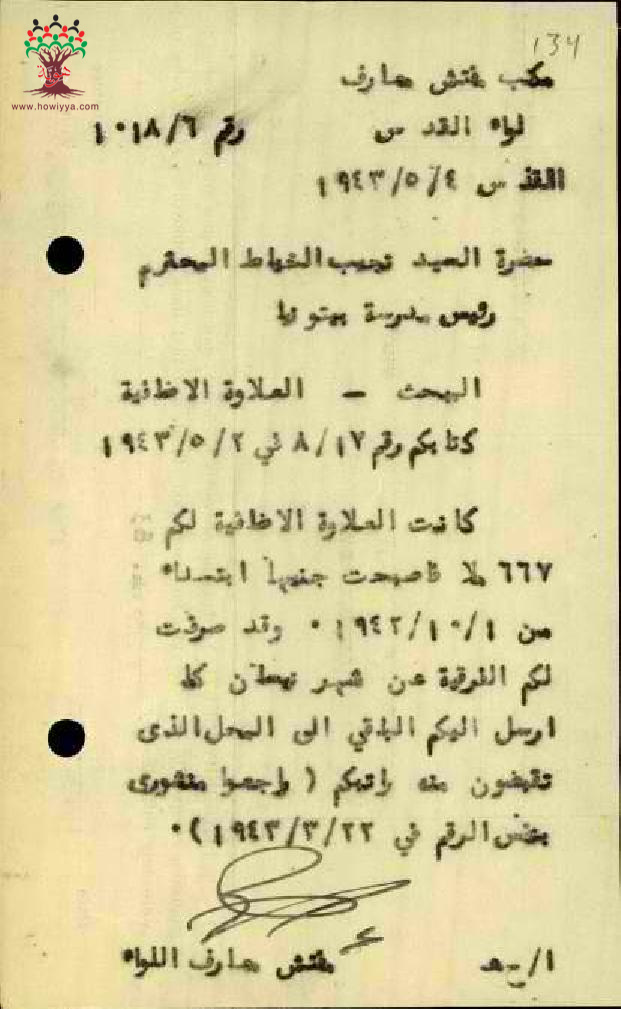 134
www.howiyya.com
مكتب مفتش معارف
لواء القدس رقم ١٠١٨/٦
القدس ١٩٤٣/٥/٤
حضرة السيد نجيب الخياط المحترم
رئيس مدرسة بيتونيا
البحث - العلاوة الاضافية
كتابكم رقم ٨/١٧ في ١٩٤٣/٥/٢
كانت العلاوة الاضافية لكم
٦٦٧ ملا فاصبحت جنيها ابتداء
من ١٩٤٢/١٠/١ ٠ وقد صرفت
لكم الفرقية عن شهر نيسان كما
ارسل اليكم الباقي الى المحل الذى
تقبضون منه راتبكم ( راجعوا منشورى
بنفس الرقم في ١٩٤٣/٣/٢٢) ٠
مفتش معارف اللواء